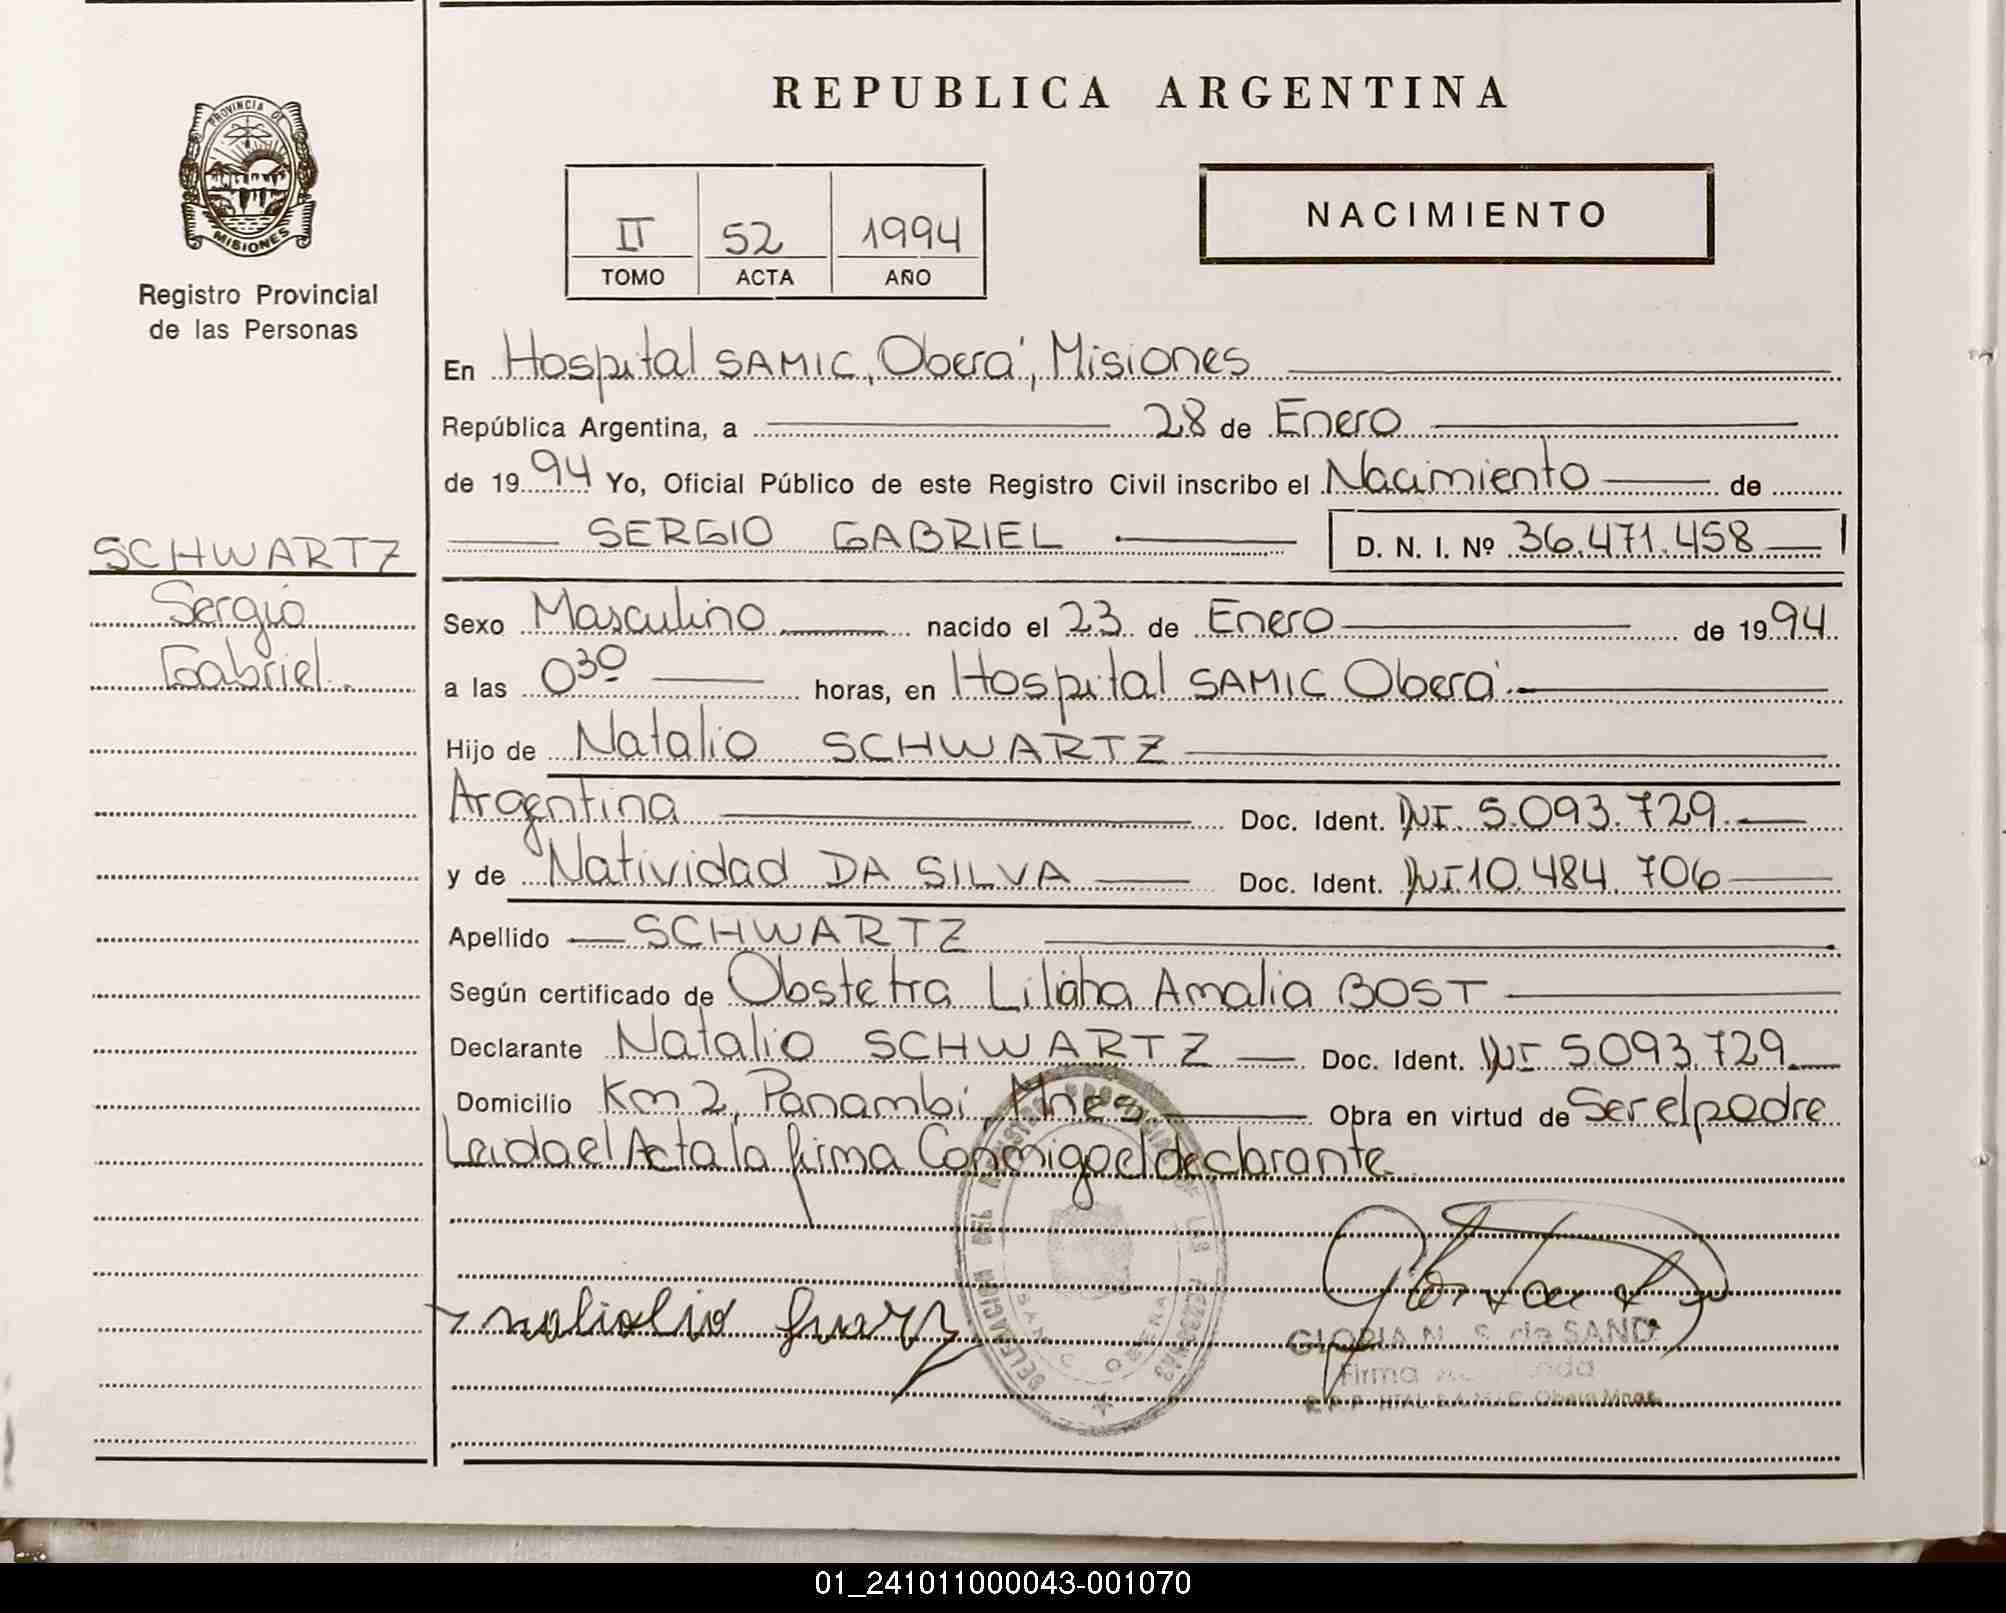 REPUBLICA ARGENTINA
PROVINCIA DE
MISIONES
Registro Provincial
de las Personas
II 52 1994
TOMO ACTA AÑO
NACIMIENTO
En Hospital SAMIC, Oberá, Misiones
República Argentina, a 28 de Enero
de 1994 Yo, Oficial Público de este Registro Civil inscribo el Nacimiento de
SERGIO GABRIEL D. N. I. Nº 36.471.458
SCHWARTZ
Sergio
Gabriel
Sexo Masculino nacido el 23 de Enero de 1994
a las 0³⁰ horas, en Hospital SAMIC Oberá
Hijo de Natalio SCHWARTZ
Argentina Doc. Ident. DNI 5.093.729
y de Natividad DA SILVA Doc. Ident. DNI 10.484.706
Apellido SCHWARTZ
Según certificado de Obstetra Liliana Amalia BOST
Declarante Natalio SCHWARTZ Doc. Ident. DNI 5.093.729
Domicilio Km 2, Panambí, Mnes Obra en virtud de Ser el padre
Leida el Acta la firma Conmigo el declarante
DELEGACION
GLORIA N. S. de SAND
Firma
01_241011000043-001070